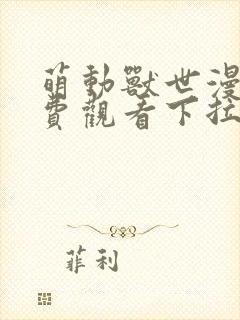 萌動獸世漫
費觀看下拉
菲利